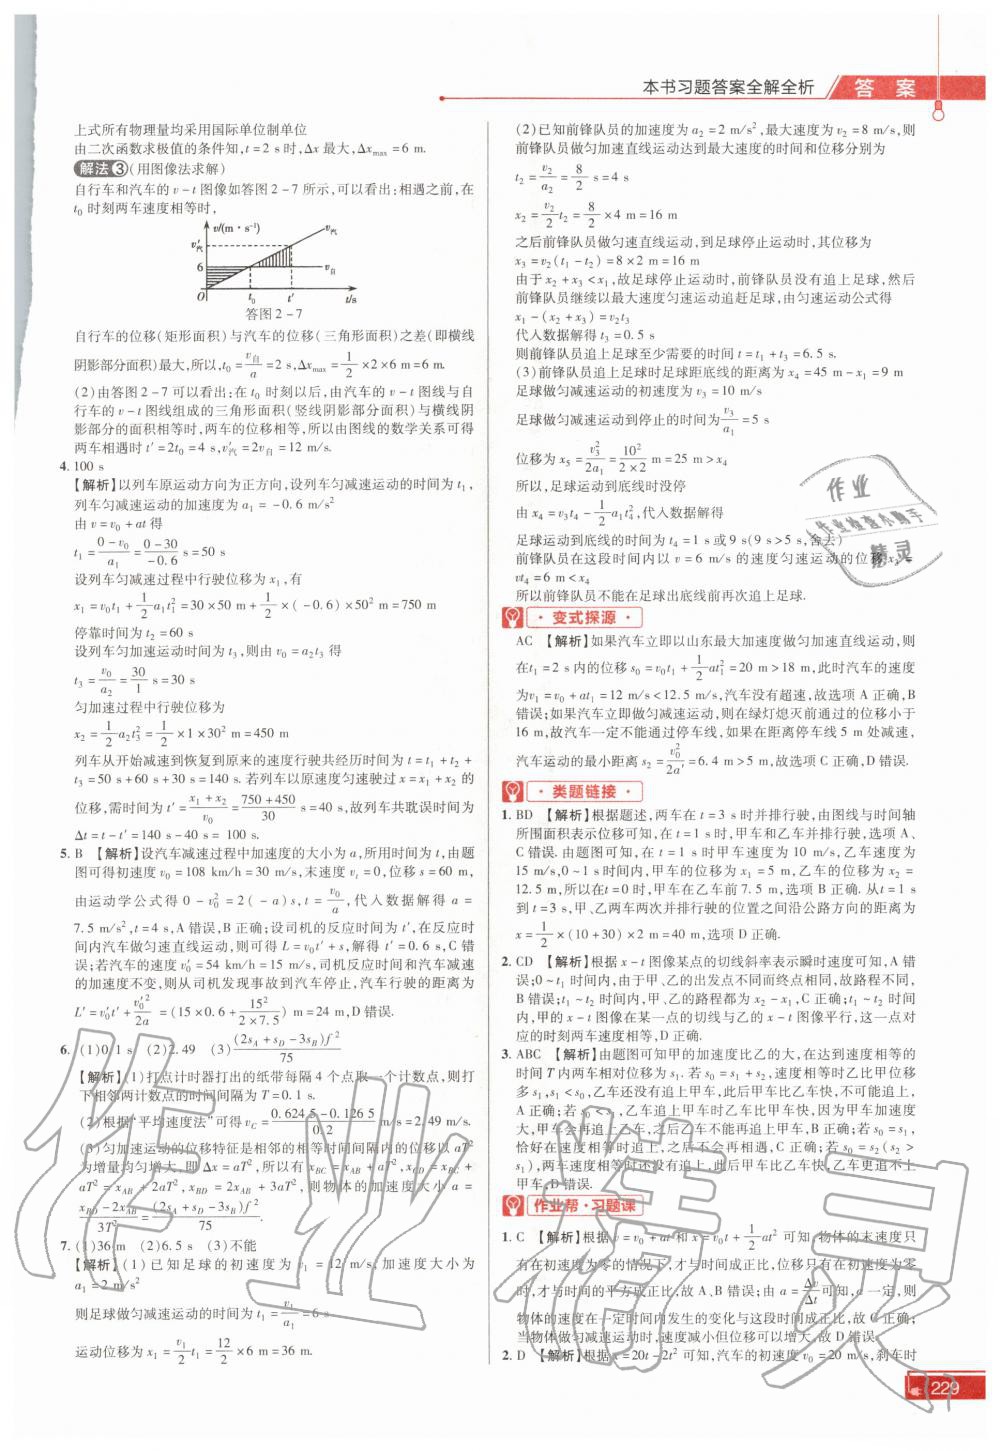 本书习题答案全解全析 答案
上式所有物理量均采用国际单位制单位
由二次函数求极值的条件知,t=2 s时,Δx最大,Δx_max=6 m.
解法③(用图像法求解)
自行车和汽车的v-t图像如答图2-7所示,可以看出:相遇之前,在
t₀时刻两车速度相等时,
v/(m·s⁻¹)
v汽
v′汽
6
v自
O t₀ t′ t/s
答图2-7
自行车的位移(矩形面积)与汽车的位移(三角形面积)之差(即横线
阴影部分面积)最大,所以,t₀=v自/a=2 s,Δx_max=1/2×2×6 m=6 m.
(2)由答图2-7可以看出:在t₀时刻以后,由汽车的v-t图线与自
行车的v-t图线组成的三角形面积(竖线阴影部分面积)与横线阴
影部分的面积相等时,两车的位移相等,所以由图线的数学关系可得
两车相遇时t′=2t₀=4 s,v′汽=2v自=12 m/s.
4. 100 s
【解析】以列车原运动方向为正方向,设列车匀减速运动的时间为t₁,
列车匀减速运动的加速度为a₁=-0.6 m/s²
由v=v₀+at得
t₁=(0-v₀)/a₁=(0-30)/(-0.6) s=50 s
设列车匀减速过程中行驶位移为x₁,有
x₁=v₀t₁+1/2a₁t₁²=30×50 m+1/2×(-0.6)×50² m=750 m
停靠时间为t₂=60 s
设列车匀加速运动时间为t₃,则由v₀=a₂t₃得
t₃=v₀/a₂=30/1 s=30 s
匀加速过程中行驶位移为
x₂=1/2a₂t₃²=1/2×1×30² m=450 m
列车从开始减速到恢复到原来的速度行驶共经历时间为t=t₁+t₂+
t₃=50 s+60 s+30 s=140 s.若列车以原速度匀速驶过x=x₁+x₂的
位移,需时间为t′=(x₁+x₂)/v₀=(750+450)/30 s=40 s,故列车共耽误时间为
Δt=t-t′=140 s-40 s=100 s.
5. B 【解析】设汽车减速过程中加速度的大小为a,所用时间为t,由题
图可得初速度v₀=108 km/h=30 m/s,末速度vₜ=0,位移s=60 m,
由运动学公式得0-v₀²=2(-a)s,t=v₀/a,代入数据解得a=
7.5 m/s²,t=4 s,A错误,B正确;设司机的反应时间为t′,在反应时
间内汽车做匀速直线运动,则可得L=v₀t′+s,解得t′=0.6 s,C错
误;若汽车的速度v₀′=54 km/h=15 m/s,司机反应时间和汽车减速
的加速度不变,则从司机发现事故到汽车停止,汽车行驶的距离为
L′=v₀′t′+v₀′²/2a=(15×0.6+15²/(2×7.5)) m=24 m,D错误.
6. (1)0.1 s (2)2.49 (3)(2s_A+s_D-3s_B)f²/75
【解析】(1)打点计时器打出的纸带每隔4个点取一个计数点,则打
下相邻两计数点的时间间隔为T=0.1 s.
(2)根据“平均速度法”可得v_C=(0.624 5-0.126 5)/0.2 m/s=2.49 m/s.
(3)匀加速运动的位移特征是相邻的相等时间间隔内的位移以aT²
为增量均匀增大,即Δx=aT²,所以有x_BC=x_AB+aT²,x_CD=x_BC+
aT²=x_AB+2aT²,x_BD=2x_AB+3aT²,则物体的加速度大小a=
(x_BD-2x_AB)/3T²=(2s_A+s_D-3s_B)f²/75.
7. (1)36 m (2)6.5 s (3)不能
【解析】(1)已知足球的初速度为v₁=12 m/s,加速度大小为
a₁=2 m/s²
则足球做匀减速运动的时间为t₁=v₁/a₁=6 s
运动位移为x₁=v₁/2 t₁=12/2×6 m=36 m.
(2)已知前锋队员的加速度为a₂=2 m/s²,最大速度为v₂=8 m/s,则
前锋队员做匀加速直线运动达到最大速度的时间和位移分别为
t₂=v₂/a₂=8/2 s=4 s
x₂=v₂/2 t₂=8/2×4 m=16 m
之后前锋队员做匀速直线运动,到足球停止运动时,其位移为
x₃=v₂(t₁-t₂)=8×2 m=16 m
由于x₂+x₃<x₁,故足球停止运动时,前锋队员没有追上足球,然后
前锋队员继续以最大速度匀速运动追赶足球,由匀速运动公式得
x₁-(x₂+x₃)=v₂t₃
代入数据解得t₃=0.5 s
则前锋队员追上足球至少需要的时间t=t₁+t₃=6.5 s.
(3)前锋队员追上足球时足球距底线的距离为x₄=45 m-x₁=9 m
足球做匀减速运动的初速度为v₃=10 m/s
足球做匀减速运动到停止的时间为v₃/a₁=5 s
位移为x₅=v₃²/2a₁=10²/(2×2) m=25 m>x₄
所以,足球运动到底线时没停
由x₄=v₃t₄-1/2a₁t₄²,代入数据解得
足球运动到底线的时间为t₄=1 s或9 s(9 s>5 s,舍去)
前锋队员在这段时间内以v=6 m/s的速度匀速运动的位移x₆=
vt₄=6 m<x₄
所以前锋队员不能在足球出底线前再次追上足球.
变式探源
AC 【解析】如果汽车立即以山东最大加速度做匀加速直线运动,则
在t₁=2 s内的位移s₀=v₀t₁+1/2at₁²=20 m>18 m,此时汽车的速度
为v₁=v₀+at₁=12 m/s<12.5 m/s,汽车没有超速,故选项A正确,B
错误;如果汽车立即做匀减速运动,则在绿灯熄灭前通过的位移小于
16 m,故汽车一定不能通过停车线,如果在距离停车线5 m处减速,
汽车运动的最小距离s₂=v₀²/2a′=6.4 m>5 m,故选项C正确,D错误.
类题链接
1. BD 【解析】根据题述,两车在t=3 s时并排行驶,由图线与时间轴
所围面积表示位移可知,在t=1 s时,甲车和乙车并排行驶,选项A、
C错误.由题图可知,在t=1 s时甲车速度为10 m/s,乙车速度为
15 m/s,0~1 s时间内,甲车的位移为x₁=5 m,乙车的位移为x₂=
12.5 m,所以在t=0时,甲车在乙车前7.5 m,选项B正确.从t=1 s
到t=3 s,甲、乙两车两次并排行驶的位置之间沿公路方向的距离为
x=1/2×(10+30)×2 m=40 m,选项D正确.
2. CD 【解析】根据x-t图像某点的切线斜率表示瞬时速度可知,A错
误;0~t₁时间内,由于甲、乙的出发点不同而终点相同,故路程不同,
B错误;t₁~t₂时间内,甲、乙的路程都为x₂-x₁,C正确;t₁~t₂时间
内,甲的x-t图像在某一点的切线与乙的x-t图像平行,这一点对
应的时刻两车速度相等,D正确.
3. ABC 【解析】由题图可知甲的加速度比乙的大,在达到速度相等的
时间T内两车相对位移为s₁.若s₀=s₁+s₂,速度相等时乙比甲位移
多s₁<s₀,乙车还没有追上甲车,此后甲车比乙车快,不可能追上,
A正确;若s₀<s₁,乙车追上甲车时乙车比甲车快,因为甲车加速度
大,甲车会再追上乙车,之后乙车不能再追上甲车,B正确;若s₀=s₁,
恰好在速度相等时追上,之后不会再相遇,C正确;若s₀=s₂(s₂>
s₁),两车速度相等时还没有追上,此后甲车比乙车快,乙车更追不上
甲车,D错误.
作业帮·习题课
1. C 【解析】根据v=v₀+at和x=v₀t+1/2at²可知,物体的末速度只
有在初速度为零的情况下,才与时间成正比,位移只有在初速度为零
时,才与时间的平方成正比,故A、B错误;由a=Δv/Δt可知,a一定,则
物体的速度在一定时间内发生的变化与这段时间成正比,故C正确;
当物体做匀减速运动时,速度减小但位移可以增大,故D错误.
2. D 【解析】根据x=20t-2t²可知,汽车的初速度v₀=20 m/s,刹车时
作业
作业检查小助手
精灵
作业精灵
229